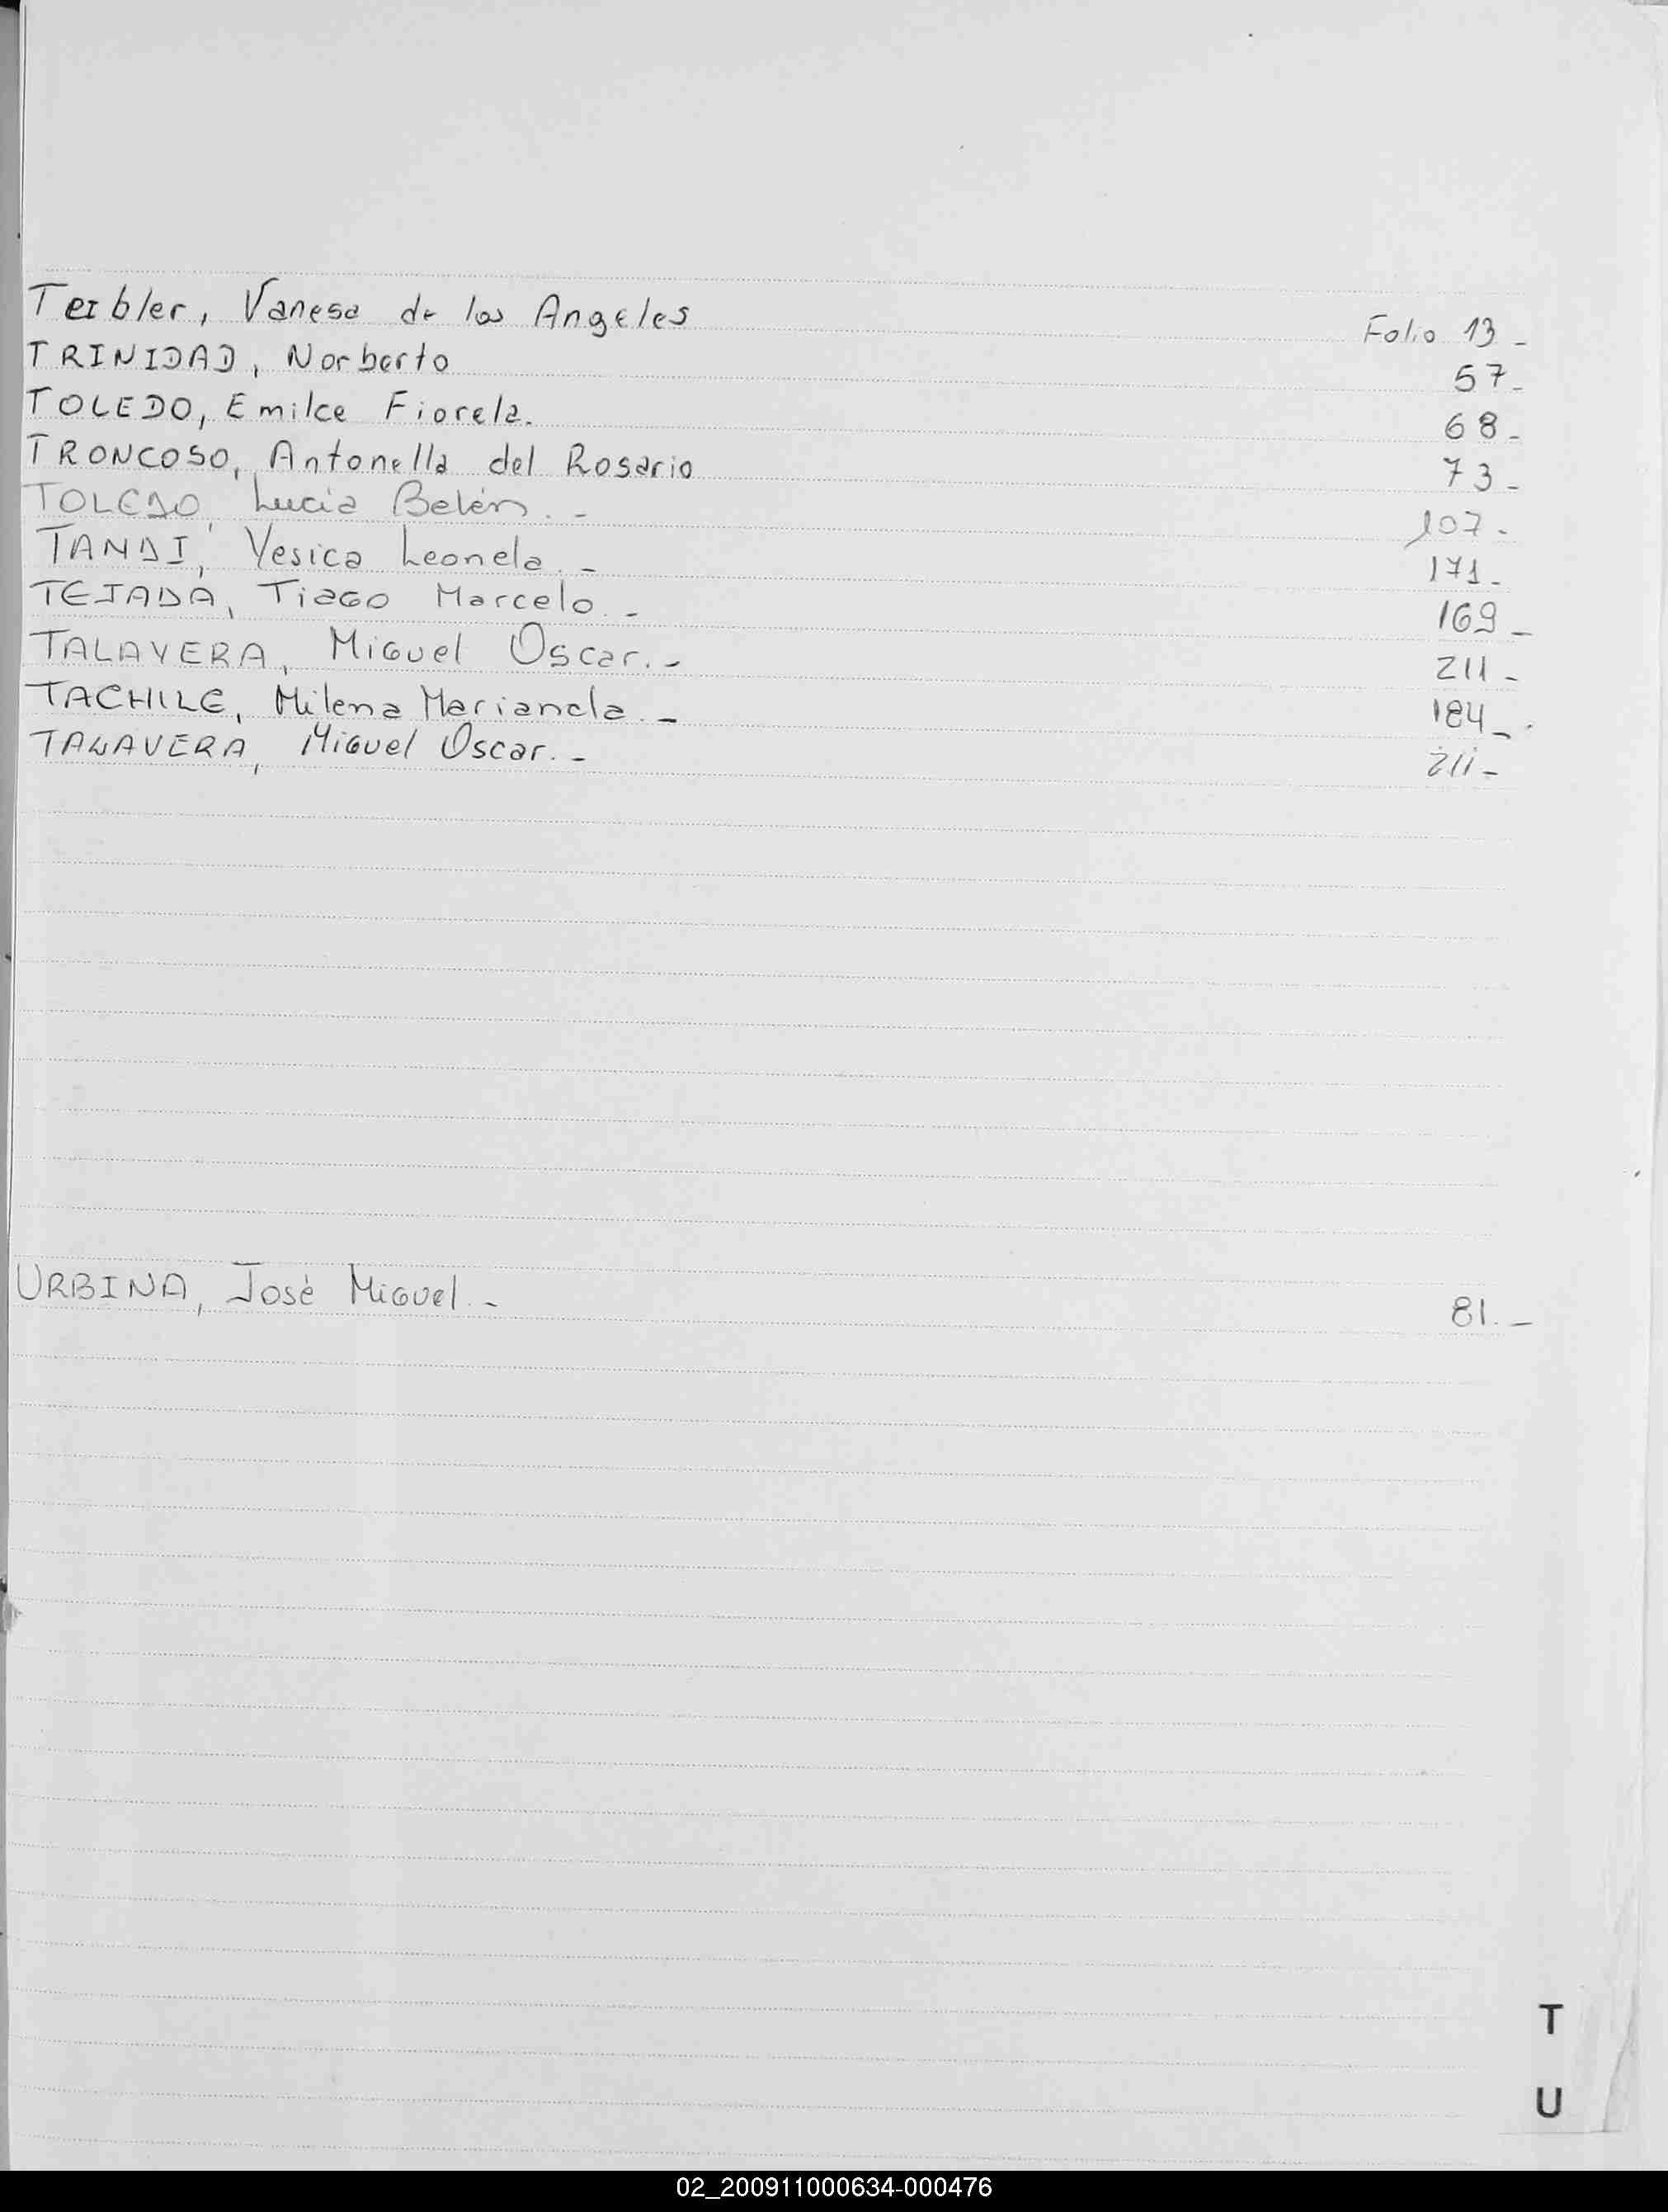 Teibler, Vanesa de los Angeles Folio 13-
TRINIDAD, Norberto 57-
TOLEDO, Emilce Fiorela. 68-
TRONCOSO, Antonella del Rosario 73-
TOLEDO, Lucia Belén.- 107-
TANDI, Yesica Leonela.- 171-
TEJADA, Tiago Marcelo.- 169-
TALAVERA, Miguel Oscar.- 211-
TACHILE, Milena Marianela.- 184-
TALAVERA, Miguel Oscar.- 211-
URBINA, José Miguel.- 81.-
T
U
02_200911000634-000476